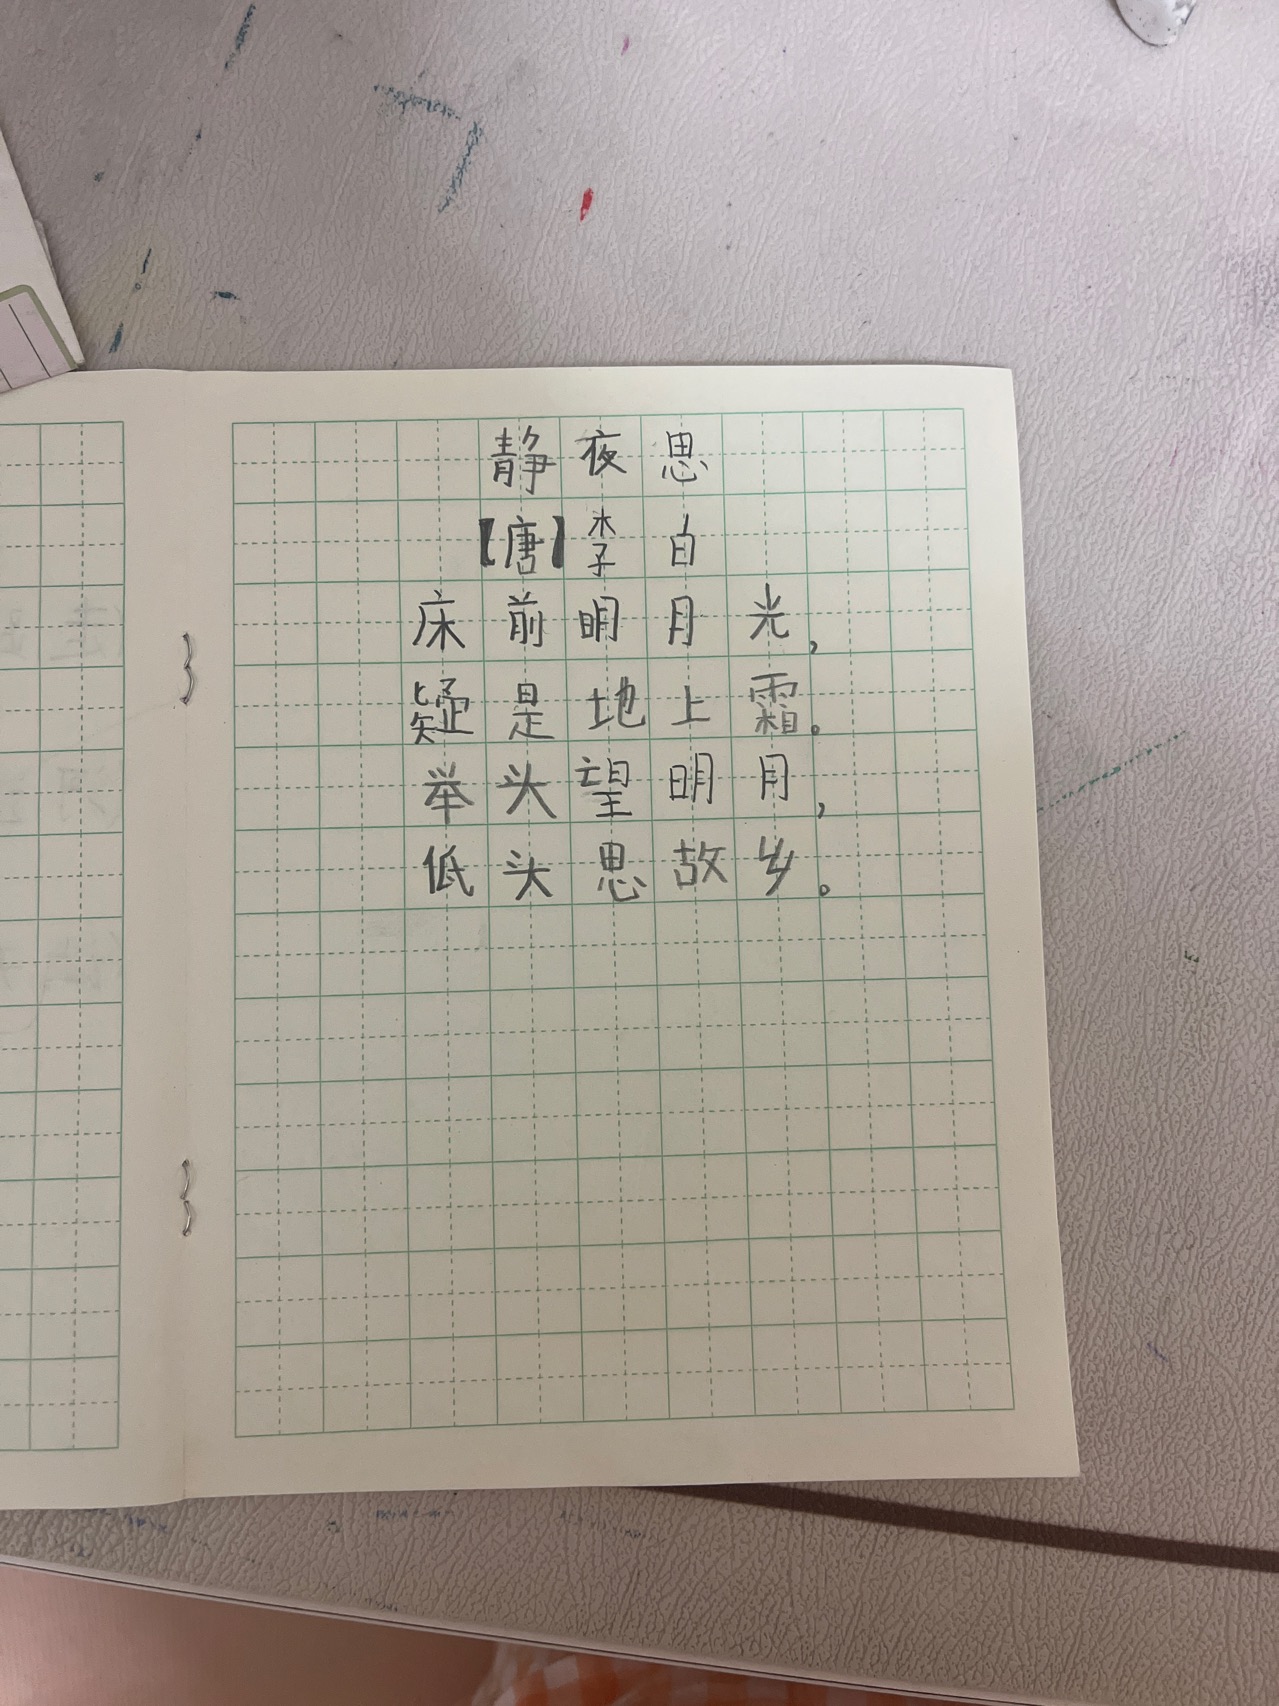 静夜思
【唐】李白
床前明月光，
疑是地上霜。
举头望明月，
低头思故乡。